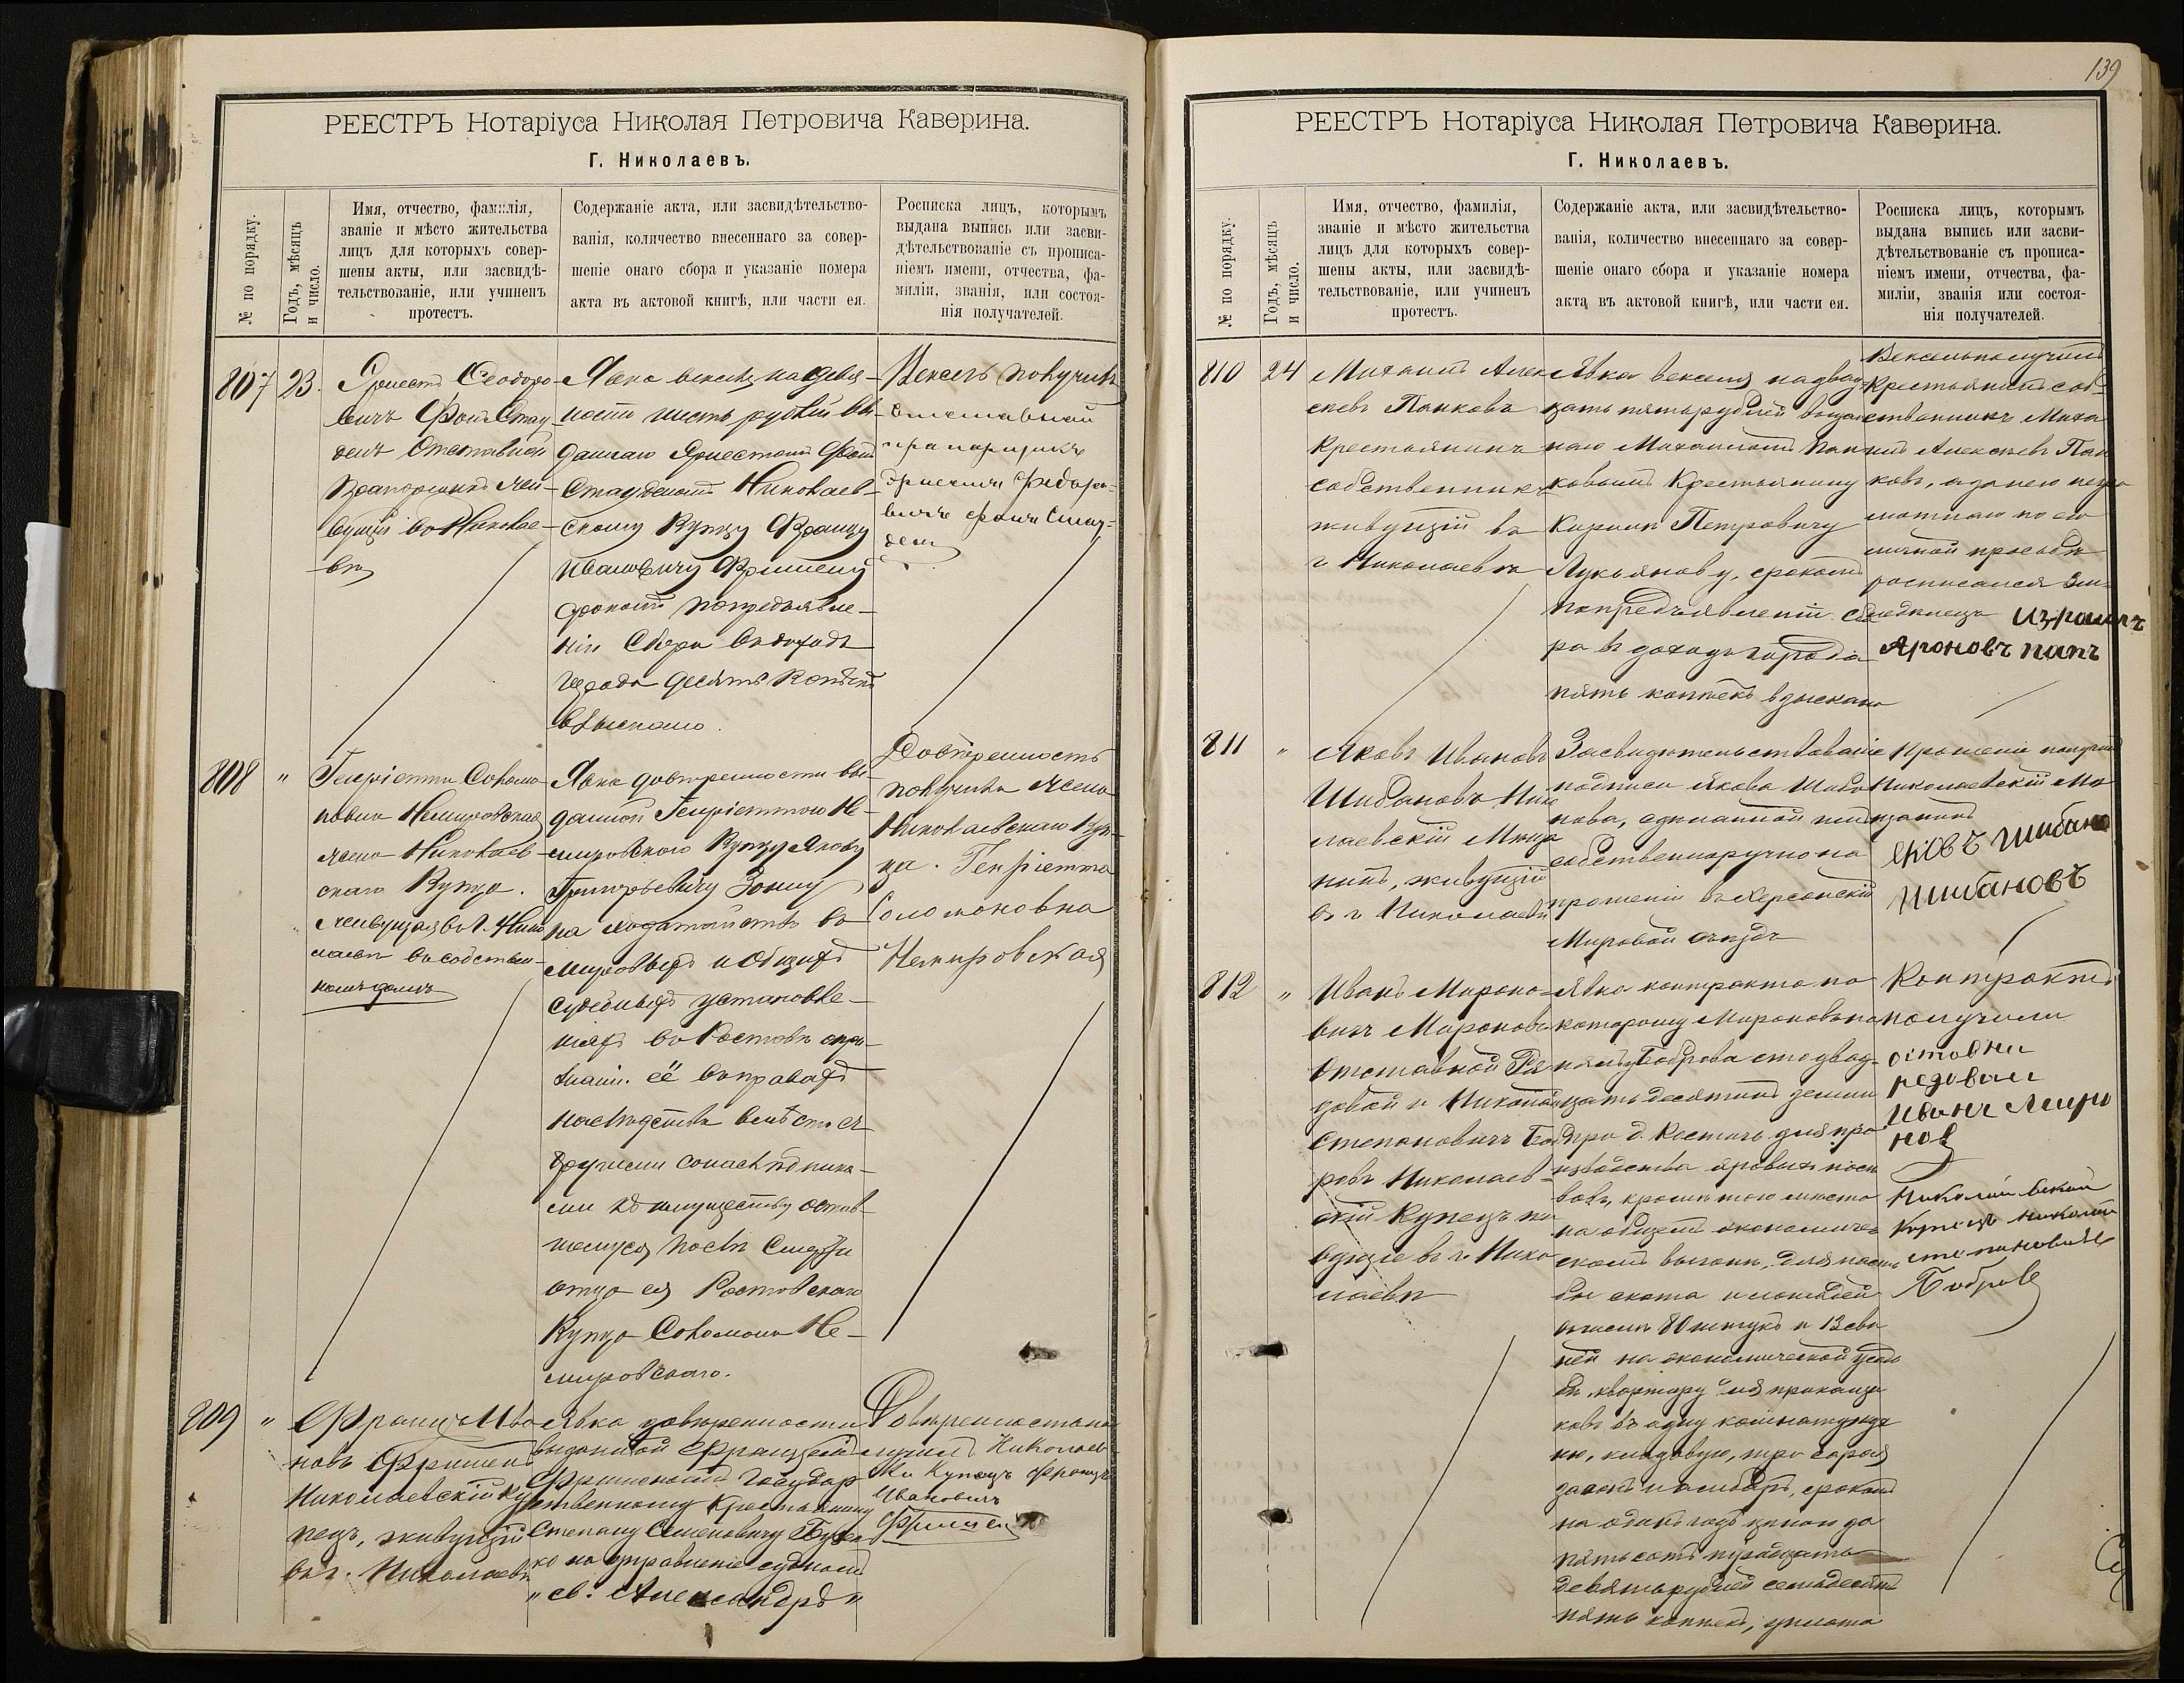 РЕЕСТРЪ Нотаріуса Николая Петровича Каверина.
Г. Николаевъ.
№ по порядку.
Годъ, мѣсяцъ
и число.
Имя, отчество, фамилія,
званіе и мѣсто жительства
лицъ для которыхъ совер-
шены акты, или засвидѣ-
тельствованіе, или учиненъ
протестъ.
Содержаніе акта, или засвидѣтельство-
ванія, количество внесеннаго за совер-
шеніе онаго сбора и указаніе номера
акта въ актовой книгѣ, или части ея.
Росписка лицъ, которымъ
выдана выпись или засви-
дѣтельствованіе съ прописа-
ніемъ имени, отчества, фа-
миліи, званія, или состоя-
нія получателей.
807
23.
Эрнестъ Ѳеодоро-
вичъ Фонъ Стау-
денъ Отставной
Прапорщикъ жи-
вущій въ Николае-
вѣ
Явка векселя на девя-
носто шесть рублей вы-
даннаго Эрнестомъ Фонъ
Стауденомъ Николаев-
скому Купцу Францу
Ивановичу Фришену
срокомъ по предъявле-
ніи Сбора въ доходъ
города десять копѣекъ
взыскано.
Вексель получилъ
отставной
прапорщикъ
Эрнестъ Федоро-
вичъ фонъ Стау-
ден
808
"
Генріетта Соломо-
новна Немировская
жена Николаев-
скаго Купца.
живущая въ г. Нико
лаевѣ въ собствен-
номъ домѣ
Явка довѣренности вы-
данной Генріеттою Не-
мировскою Купцу Якову
Григорьевичу Зонну
на ходатайствъ въ
мировыхъ и общихъ
судебныхъ установле-
ніяхъ въ Ростовѣ
её въ правахъ
наслѣдства вмѣстѣ съ
другими сонаслѣдника-
ми къ имуществу остав-
шемуся послѣ Смерти
отца ея Ростовскаго
Купца Соломона Не-
мировскаго.
Довѣренность
получила жена
Николаевскаго Куп-
ца. Генріетта
Соломоновна
Немировская
809
"
Францъ Ива
новъ Фришенъ
Николаевскій Ку
пецъ, живущій
въ г. Николаевѣ
Явка довѣренности
выданной Францемъ
Фришеномъ Государ
ственному Крестьянину
Степану Семеновичу
ко на управленіе судномъ
"св. Александръ"
Довѣренность по
лучилъ Николаев
ски Купецъ Францъ
Ивановичъ
Фришен
139
РЕЕСТРЪ Нотаріуса Николая Петровича Каверина.
Г. Николаевъ.
№ по порядку.
Годъ, мѣсяцъ
и число.
Имя, отчество, фамилія,
званіе и мѣсто жительства
лицъ для которыхъ совер-
шены акты, или засвидѣ-
тельствованіе, или учиненъ
протестъ.
Содержаніе акта, или засвидѣтельство-
ванія, количество внесеннаго за совер-
шеніе онаго сбора и указаніе номера
акта въ актовой книгѣ, или части ея.
Росписка лицъ, которымъ
выдана выпись или засви-
дѣтельствованіе съ прописа-
ніемъ имени, отчества, фа-
миліи, званія или состоя-
нія получателей.
810
24
Михаилъ Алек
сѣевъ Панковъ
Крестьянинъ
собственникъ
живущій въ
г. Николаевѣ
Явка векселя на двад
цать пять рублей выдан
наго Михаиломъ Пан
ковымъ Крестьянину
Кирилѣ Петровичу
Лукьянову, срокомъ
по предъявленіи сбо
ра въ доходъ города
пять копѣекъ взыскано
Вексель получилъ
Крестьянинъ соб-
ственникъ Миха
илъ Алексѣевъ Пан
ковъ, а за него негра
мотнаго по его
личной просьбѣ
росписался
Израиль
Ароновъ папъ
811
"
Яковъ Ивановъ
Шибановъ Нико
лаевскій Мѣща
нинъ, живущій
въ г. Николаевѣ
Засвидѣтельствованіе
подписи Якова Шиба
нова, сдѣланной имъ
собственноручно на
прошеніи въ Херсонскій
Мировой съѣздъ
Прошеніе получилъ
Николаевскій Мѣ
щанинъ
Яковъ Шибано
Шибановъ
812
"
Иванъ Мироно-
вичъ Мироновъ
Отставной Ря
довой и Николай
Степановичъ Боб
ровъ Николаев-
скій Купецъ жи
вущіе въ г. Нико
лаевѣ
Явка контракта по
которому Мироновъ на
нялъ у Боброва сто двад-
цать десятинъ земли
при д. Костичь для про
изводства яровыхъ посѣ
вовъ, кромѣ того мѣсто
на общемъ экономиче
скомъ выгонѣ, для пасть
бы скота и лошадей
числѣ 80 штукъ и 13 сви
ней на экономической усадь
бѣ, квартиру для
ковъ въ одну комнату, кух
ню, кладовую, три сарая
загонъ и амбаръ, срокомъ
на одинъ годъ цѣною за
пятьсотъ тридцать
девять рублей семьдесятъ
пять копѣекъ, уплата
Контрактъ
получили
отставни
редовои
Иванъ Миро
нов
Николаивский
Купецъ Николай
степановичъ
Бобровъ